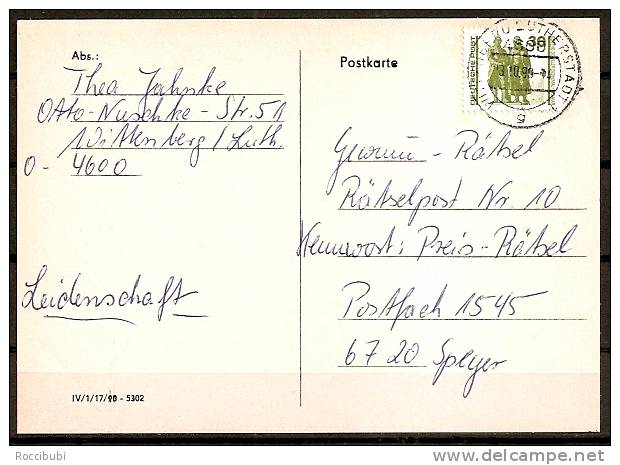 Abs.:
Thea Jahnke
Otto-Nuschke-Str. 51
Wittenberg/Luth.
O- 4600
Leidenschaft
IV/1/17/90 - 5302
Postkarte
DEUTSCHE POST
LUTHERSTADT
4600
g
Gewinn-Rätsel
Rätselpost Nr. 10
Kennwort: Preis-Rätsel
Postfach 1545
6720 Speyer
Roccibubi
delcampe.net